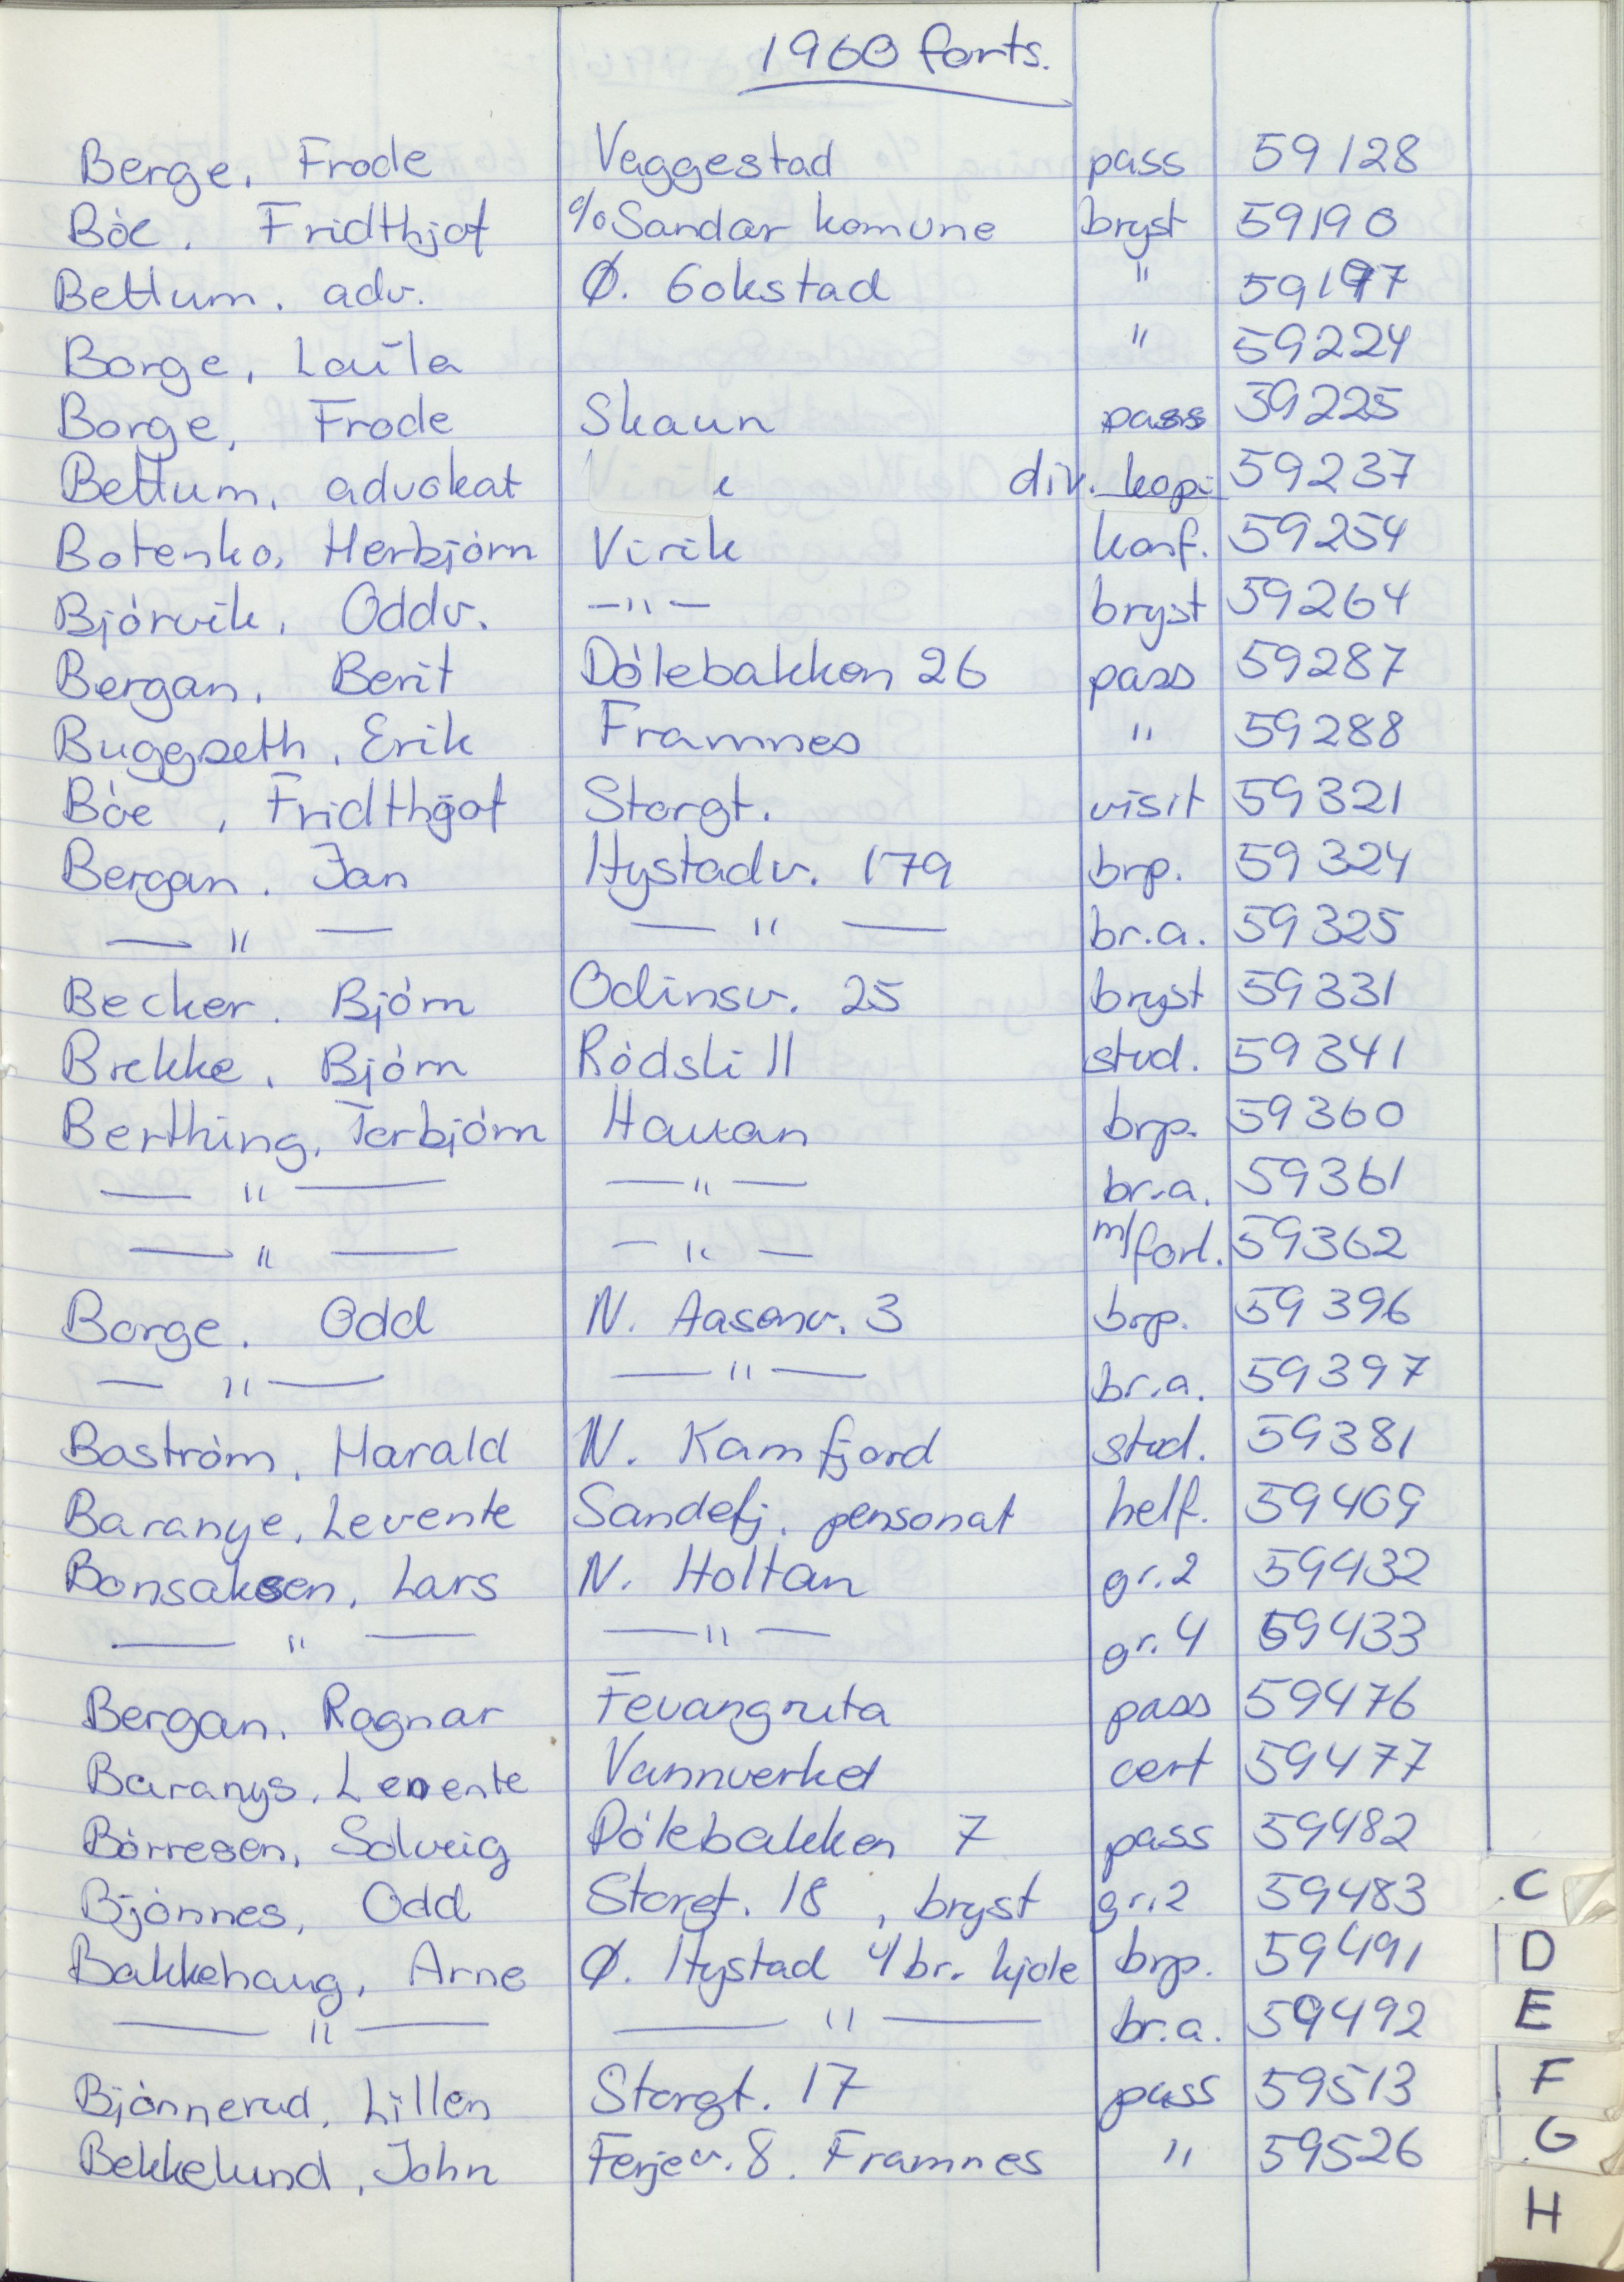 1960 forts.
Berge, Frode Vaggestad pass 59128
Bòe, Fridthjof % Sandar komune bryst 59190
Bettum, adv. Ø. Gokstad " 59197
Borge, Laila " 59224
Borge, Frode Skaun pass 59225
Bettum, advokat div. kopi 59237
Botenko, Herbjòrn Virik konf. 59254
Bjòrvik, Oddv. —"— bryst 59264
Bergan, Berit Dòlebakken 26 pass 59287
Buggseth, Erik Framnes " 59288
Bòe, Fridthjof Storgt. visit 59321
Bergan, Jan Hystadv. 179 brp. 59324
— " — — " — br.a. 59325
Becker, Bjòrn Odinsv. 25 bryst 59331
Brekke, Bjòrn Ròdsli 11 stud. 59341
Berthing, Torbjòrn Hauan brp. 59360
— " — — " — br.a. 59361
— " — — " — m/forl. 59362
Borge, Odd N. Aasenv. 3 brp. 59396
— " — — " — br.a. 59397
Bostròm, Harald N. Kamfjord stud. 59381
Baranye, Levente Sandefj. pensonat helf. 59409
Bonsaksen, Lars N. Holtan gr.2 59432
— " — — " — gr.4 59433
Bergan, Ragnar Fevangruta pass 59476
Baranys, Levente Vannverket cert 59477
Bòrresen, Solveig Dòlebakken 7 pass 59482
Bjònnes, Odd Storgt. 18, bryst gr.2 59483
Bakkehaug, Arne Ø. Hystad 4/br. kjole brp. 59491
— " — — " — br.a. 59492
Bjònnerud, Lillen Storgt. 17 pass 59513
Bekkelund, John Ferjev. 8. Framnes " 59526
C
D
E
F
G
H